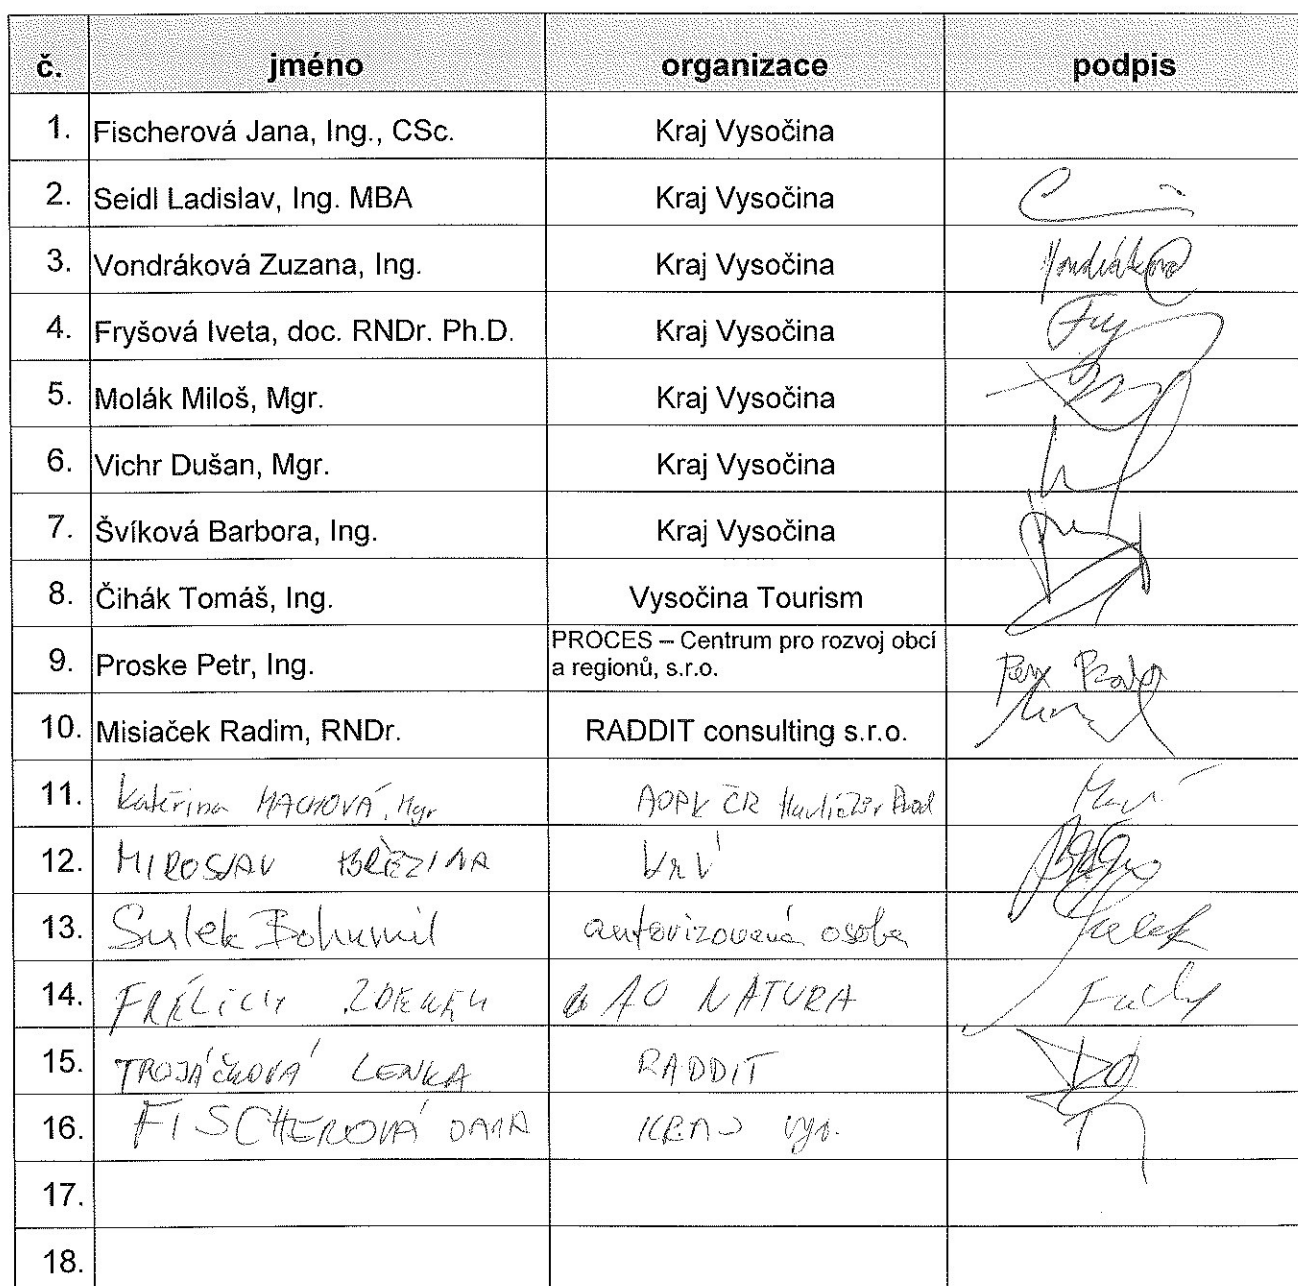 č. jméno organizace podpis
1. Fischerová Jana, Ing., CSc. Kraj Vysočina
2. Seidl Ladislav, Ing. MBA Kraj Vysočina
3. Vondráková Zuzana, Ing. Kraj Vysočina Vondráková
4. Fryšová Iveta, doc. RNDr. Ph.D. Kraj Vysočina
5. Molák Miloš, Mgr. Kraj Vysočina
6. Vichr Dušan, Mgr. Kraj Vysočina
7. Švíková Barbora, Ing. Kraj Vysočina
8. Čihák Tomáš, Ing. Vysočina Tourism
9. Proske Petr, Ing. PROCES – Centrum pro rozvoj obcí
a regionů, s.r.o.
10. Misiaček Radim, RNDr. RADDIT consulting s.r.o.
11. Kateřina MACHOVÁ, Mgr AOPK ČR
12. MIROSLAV BŘEZINA KrV
13. Sulek Bohumil autorizovaná osoba Sulek
14. ZDENĚK AO NATURA
15. TROJÁČKOVÁ LENKA RADDIT
16. FISCHEROVÁ JANA KRAJ vys.
17.
18.